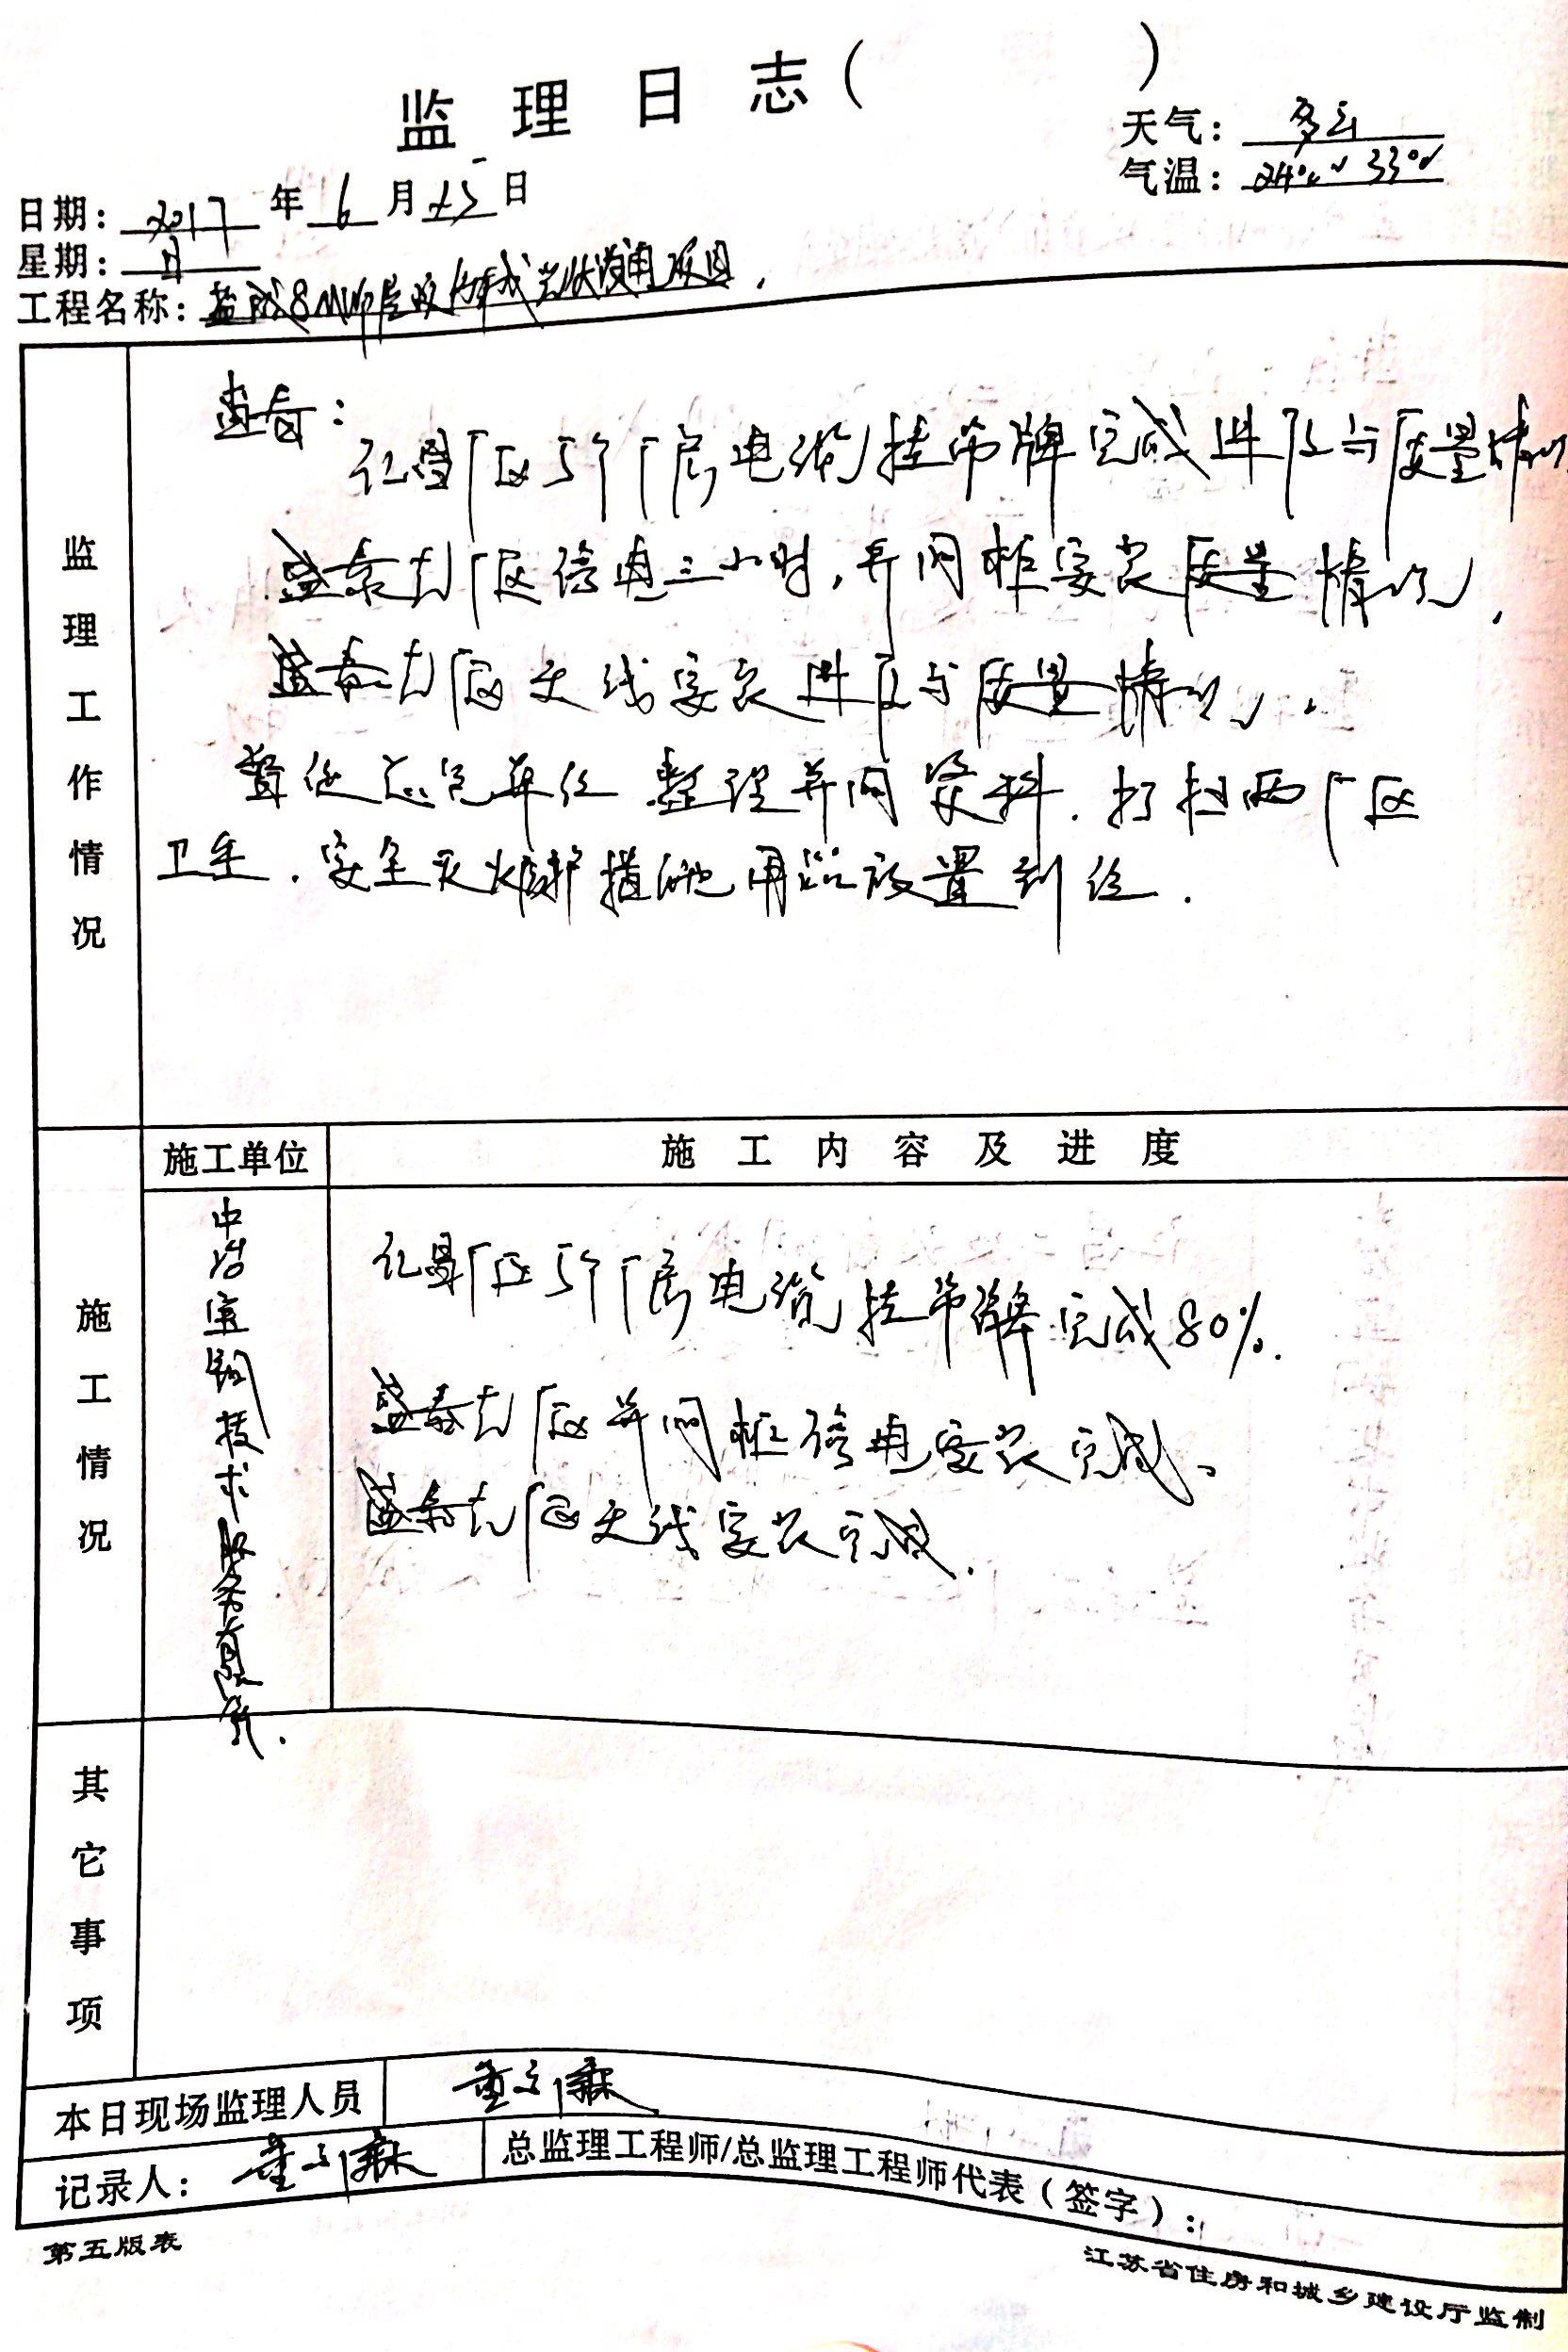 监理日志（　　　）
天气：多云
气温：24℃~33℃
日期：2017年6月25日
星期：日
工程名称：盐城8MW屋顶分布式光伏发电项目.
监理工作情况
查看：
厂区5个厂房电缆挂吊牌完成进度与质量情况
盛泰光厂区停电三小时,并网柜安装质量情况,
盛泰光厂区天线安装进度与质量情况.
督促总包单位整理并网资料.打扫两厂区
卫生.安全灭火防护措施用品放置到位.
施工情况
施工单位
施工内容及进度
中冶宝钢技术服务有限公司.
厂区5个厂房电缆挂吊牌完成80%.
盛泰光厂区并网柜停电安装完成.
盛泰光厂区天线安装完成.
其它事项
本日现场监理人员
记录人：
总监理工程师/总监理工程师代表（签字）：
第五版表
江苏省住房和城乡建设厅监制